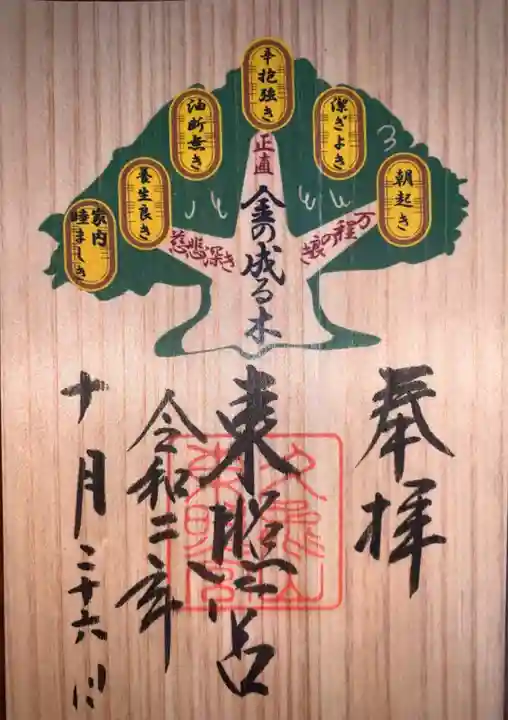 辛抱強き
潔ぎよき
朝起き
油断無き
養生良き
家内
睦ましき
正直
万程の
慈悲深き
金の成る木
奉拝
東照宮
久能山
東照宮
令和二年
十月二十六日